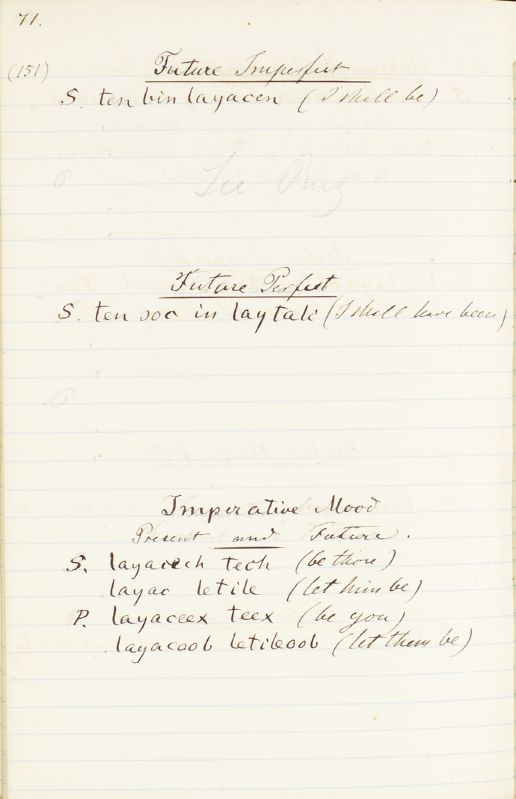 71.
(151)
Future Imperfect
S. ten bin layacen (I shall be)
See Ruz
Future Perfect
S. ten ooc in laytale (I shall have been)
Imperative Mood
Present and Future.
S. layacech tech (be thou)
layac letile (let him be)
P. layaceex teex (be you)
layacoob letileoob (let them be)